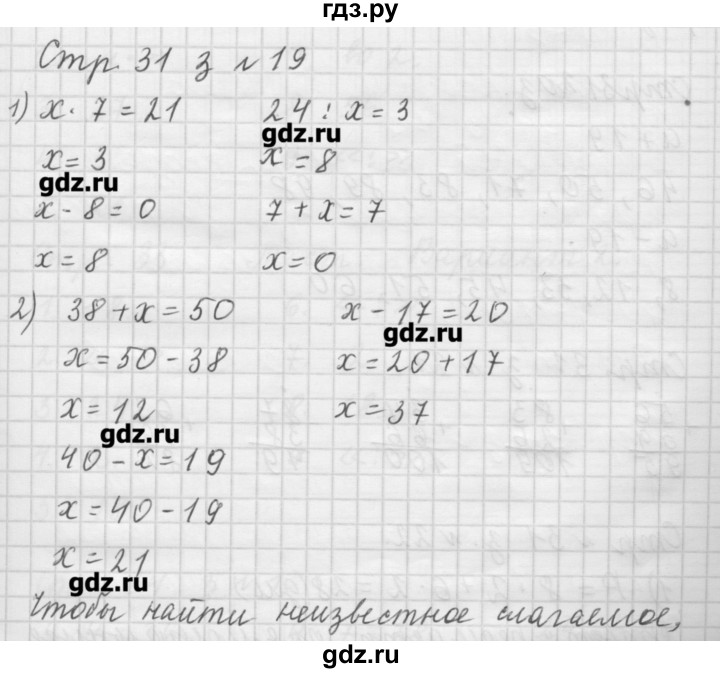 гдз.ру
Стр. 31 з № 19
1) x · 7 = 21     24 : x = 3
gdz.ru
x = 3     x = 8
gdz.ru
x - 8 = 0     7 + x = 7
x = 8     x = 0
2) 38 + x = 50     x - 17 = 20
gdz.ru
x = 50 - 38     x = 20 + 17
x = 12     x = 37
gdz.ru
40 - x = 19
x = 40 - 19
x = 21
gdz.ru
Чтобы найти неизвестное слагаемое,
gdz.ru